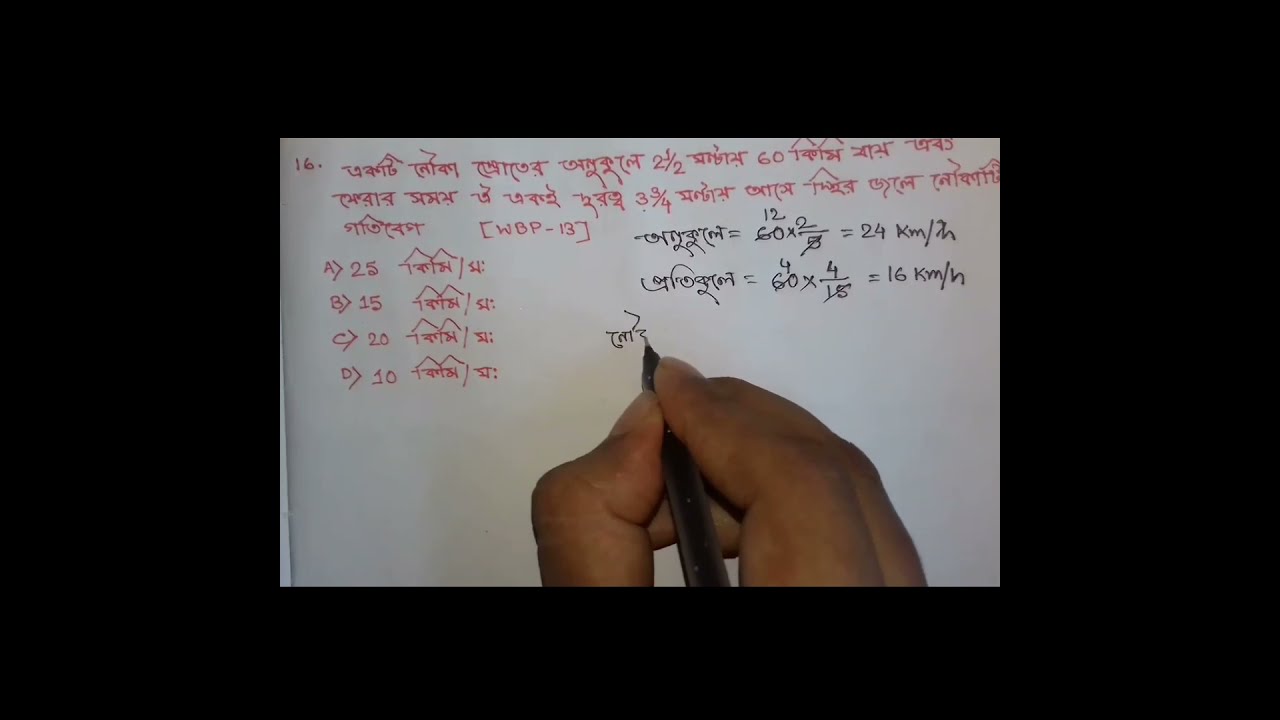 16. একটি নৌকা স্রোতের অনুকুলে 2½ ঘন্টায় 60 কিমি যায় এবং
ফেরার সময় ঐ একই দূরত্ব 3¾ ঘন্টায় আসে স্থির জলে নৌকাটি
গতিবেগ [WBP-13]
A) 25 কিমি/ঘ:
B) 15 কিমি/ঘ:
C) 20 কিমি/ঘ:
D) 10 কিমি/ঘ:
অনুকুলে = 12 60 × 2/5 = 24 Km/h
প্রতিকুলে = 4 60 × 4/15 = 16 Km/h